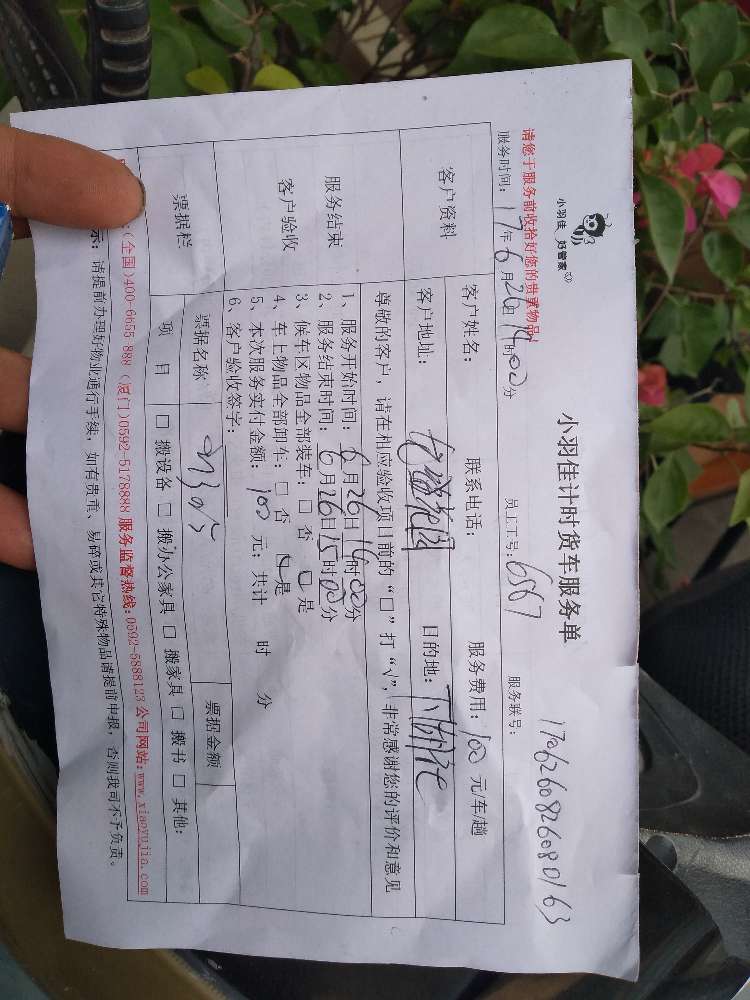 小羽佳 好管家
小羽佳计时货车服务单
1706260826080163
请您于服务前收拾好您的贵重物品!
服务时间: 17年6月26日14时00分 员工工号: 6567 服务联号:
客户资料
客户姓名: 联系电话: 服务费用: 100 元/车/趟
客户地址: 目的地:
服务结束
客户验收
尊敬的客户, 请在相应验收项目前的“□”打“√”, 非常感谢您的评价和意见
1、服务开始时间: 6月26日14时00分
2、服务结束时间: 6月26日15时00分
3、候车区物品全部装车: □ 否 □ 是
4、车上物品全部卸车: □ 否 □ 是
5、本次服务实付金额: 100 元; 共计 时 分
6、客户验收签字:
票据栏
票据名称 票据金额
项 目 □ 搬设备 □ 搬办公家具 □ 搬家具 □ 搬书 □ 其他:
(全国)400-6655-888 (厦门)0592-5178888 服务监督热线:0592-5888123 公司网站:www.xiaoyujia.com
示: 请提前办理好物业通行手续, 如有贵重、易碎或其它特殊物品请提前申报, 否则我司不予负责。